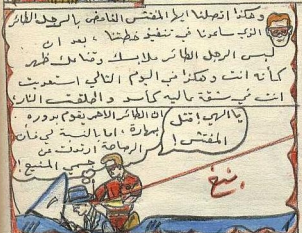 وهكذا اتصلنا ايها المفتش الغامض بالرجل الطائر
الذي ساعدنا في تنفيذ خطتنا، بعد ان
لبس الرجل الطائر ملابسك وقناعك ظهر
كأنه انت وهكذا في اليوم التالي استعديت
انت في شقة عالية كاسد واطلقت النار
يا الهي! قتل
المفتش!
ان الطائر الاحمر يقوم بدوره
بمهارة، اما بالنسبة لي فأن
الرصاصة ارتدت عن
جسمي المنيع!